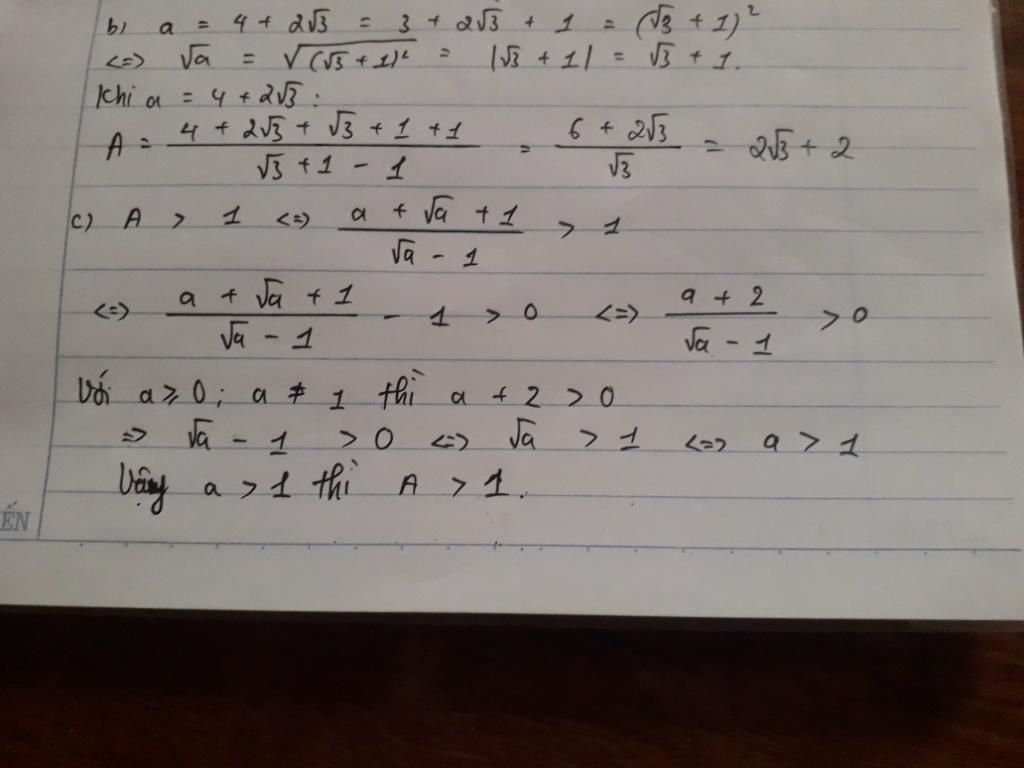 b) a = 4 + 2√3 = 3 + 2√3 + 1 = (√3 + 1)²
<=> √a = √(√3 + 1)² = |√3 + 1| = √3 + 1.
Khi a = 4 + 2√3 :
A = (4 + 2√3 + √3 + 1 + 1)/(√3 + 1 - 1) = (6 + 2√3)/√3 = 2√3 + 2
c) A > 1 <=> (a + √a + 1)/(√a - 1) > 1
<=> (a + √a + 1)/(√a - 1) - 1 > 0 <=> (a + 2)/(√a - 1) > 0
Với a ≥ 0 ; a ≠ 1 thì a + 2 > 0
=> √a - 1 > 0 <=> √a > 1 <=> a > 1
Vậy a > 1 thì A > 1.
ẾN